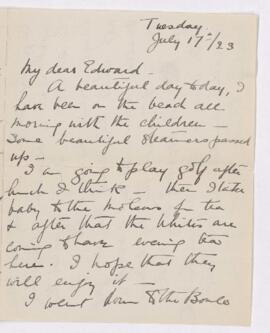 Tuesday.
July 17/23
My dear Edward –
A beautiful day today, I
have been on the beach all
morning with the children –
Some beautiful steamers passed
up –
I am going to play golf after
lunch I think – then I take
baby to the for tea
& after that the Whites are
coming to have evening tea
here. I hope that they
will enjoy it –
I went down to the